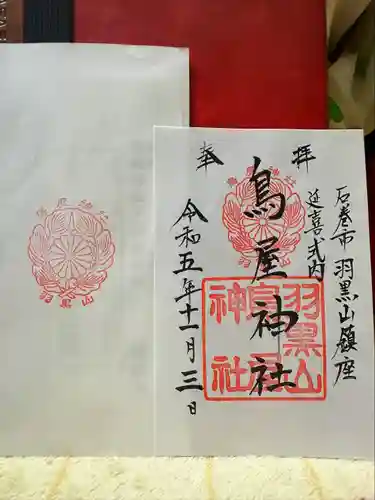 奉拝
石巻市 羽黒山鎮座
延喜式内
鳥屋神社
令和五年十一月三日
羽黒山
鳥屋
神社
羽黒山
羽黒山